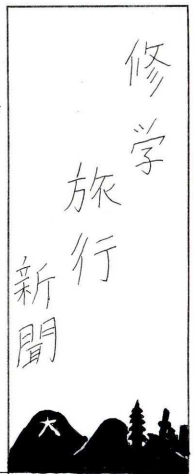 修学
旅行
新聞
大